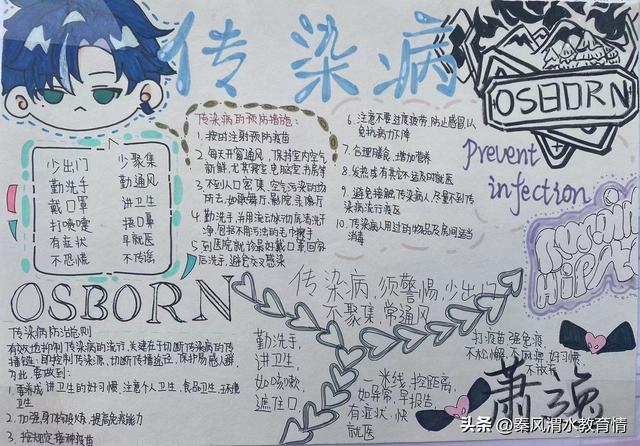 传染病
OSBORN
Prevent
infection
传染病的预防措施:
1.按时注射预防疫苗
2.每天开窗通风,保持室内空气
新鲜,尤其寝室电脑室书房等
3.不到人口密集,空气污染的场
所去,如歌舞厅,影院,录像厅
4.勤洗手,并用流动水彻底清洗干
净,包括不用污浊的毛巾擦手
5.到医院就诊最好戴口罩回家
后洗手,避免交叉感染
6.注意不要过度疲劳,防止感冒,以
免抗病力下降
7.合理膳食,增加营养
8.发热或有其它不适及时就医
9.避免接触传染病人,尽量不到传
染病流行疫区
10.传染病人用过的物品及房间适当
消毒
少出门 少聚集
勤洗手 勤通风
戴口罩 讲卫生
打喷嚏 捂口鼻
有症状 早就医
不恐慌 不传谣
OSBORN
传染病防治原则
有效地抑制传染病的流行,关键在于切断传染病的传
播链:即控制传染源、切断传播途径、保护易感人群,
为此,要做到:
1.要养成讲卫生的好习惯,注意个人卫生,食品卫生,环境
卫生
2.加强身体锻炼,提高免疫能力
3.按规定接种疫苗
传染病,须警惕,少出门
不聚集,常通风
勤洗手,
讲卫生,
如咳嗽,
遮住口
一米线,控距离,
如异常,早报告,
有症状,快
就医
打疫苗,强免疫,
不松懈,不麻痹,好习惯
不放弃
萧逸
头条 @秦风渭水教育情